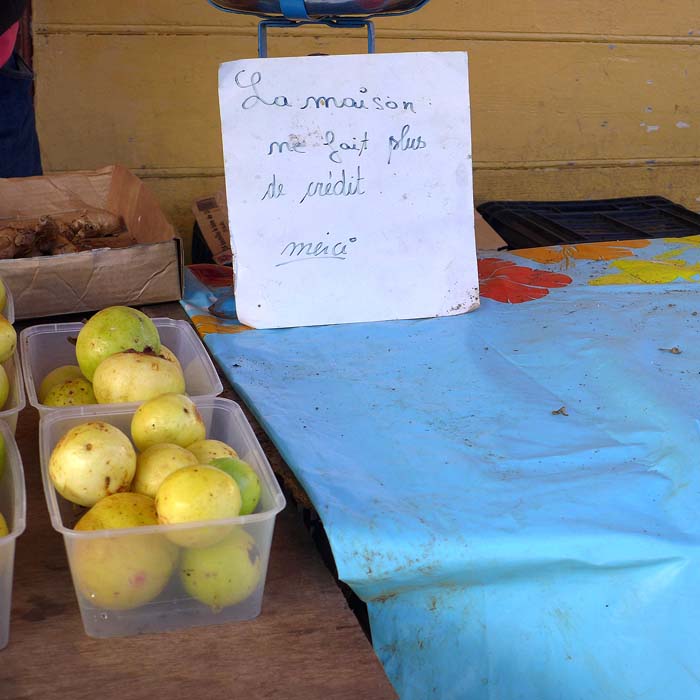 La maison
ne fait plus
de crédit
merci